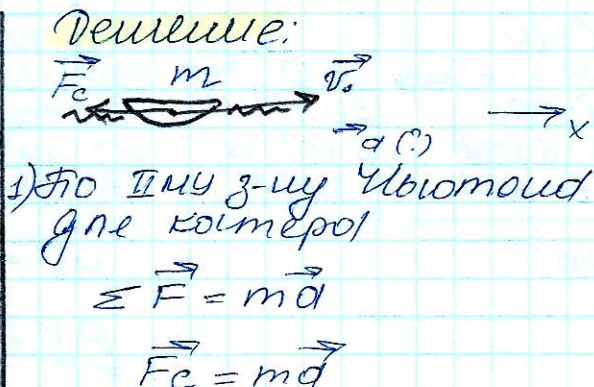 Решение:
F⃗c m v⃗₀
a⃗ (?) x
1) По IIму з-ну Ньютона
для катера
Σ F⃗ = ma⃗
F⃗c = ma⃗